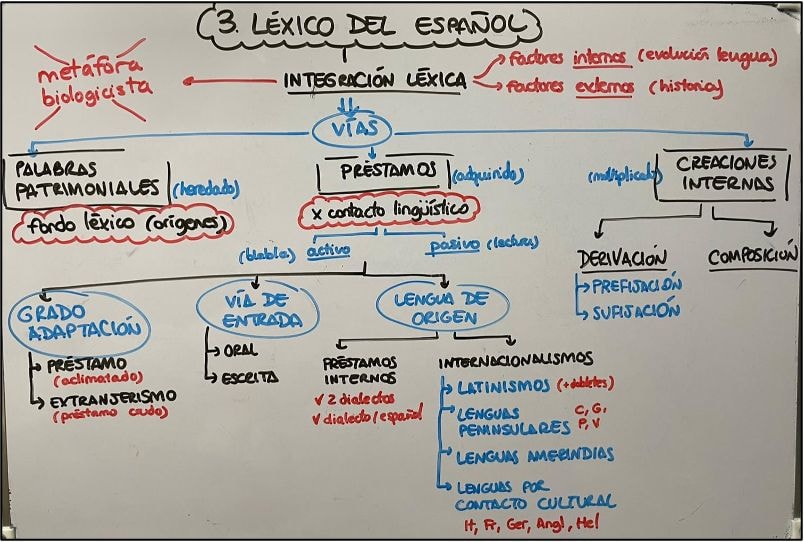 3. LÉXICO DEL ESPAÑOL
metáfora
biologicista
INTEGRACIÓN LÉXICA
factores internos (evolución lengua)
factores externos (historia)
VÍAS
PALABRAS
PATRIMONIALES (heredado)
fondo léxico (orígenes)
PRÉSTAMOS (adquirido)
x contacto lingüístico
(habla) activo
pasivo (lectura)
(multiplicado) CREACIONES
INTERNAS
DERIVACIÓN
PREFIJACIÓN
SUFIJACIÓN
COMPOSICIÓN
GRADO
ADAPTACIÓN
PRÉSTAMO
(aclimatado)
EXTRANJERISMO
(préstamo crudo)
VÍA DE
ENTRADA
ORAL
ESCRITA
LENGUA DE
ORIGEN
PRÉSTAMOS
INTERNOS
✓ 2 dialectos
✓ dialecto/español
INTERNACIONALISMOS
LATINISMOS (+dobletes)
LENGUAS C, G,
PENINSULARES P, V
LENGUAS AMERINDIAS
LENGUAS POR
CONTACTO CULTURAL
It, Fr, Ger, Angl, Hel